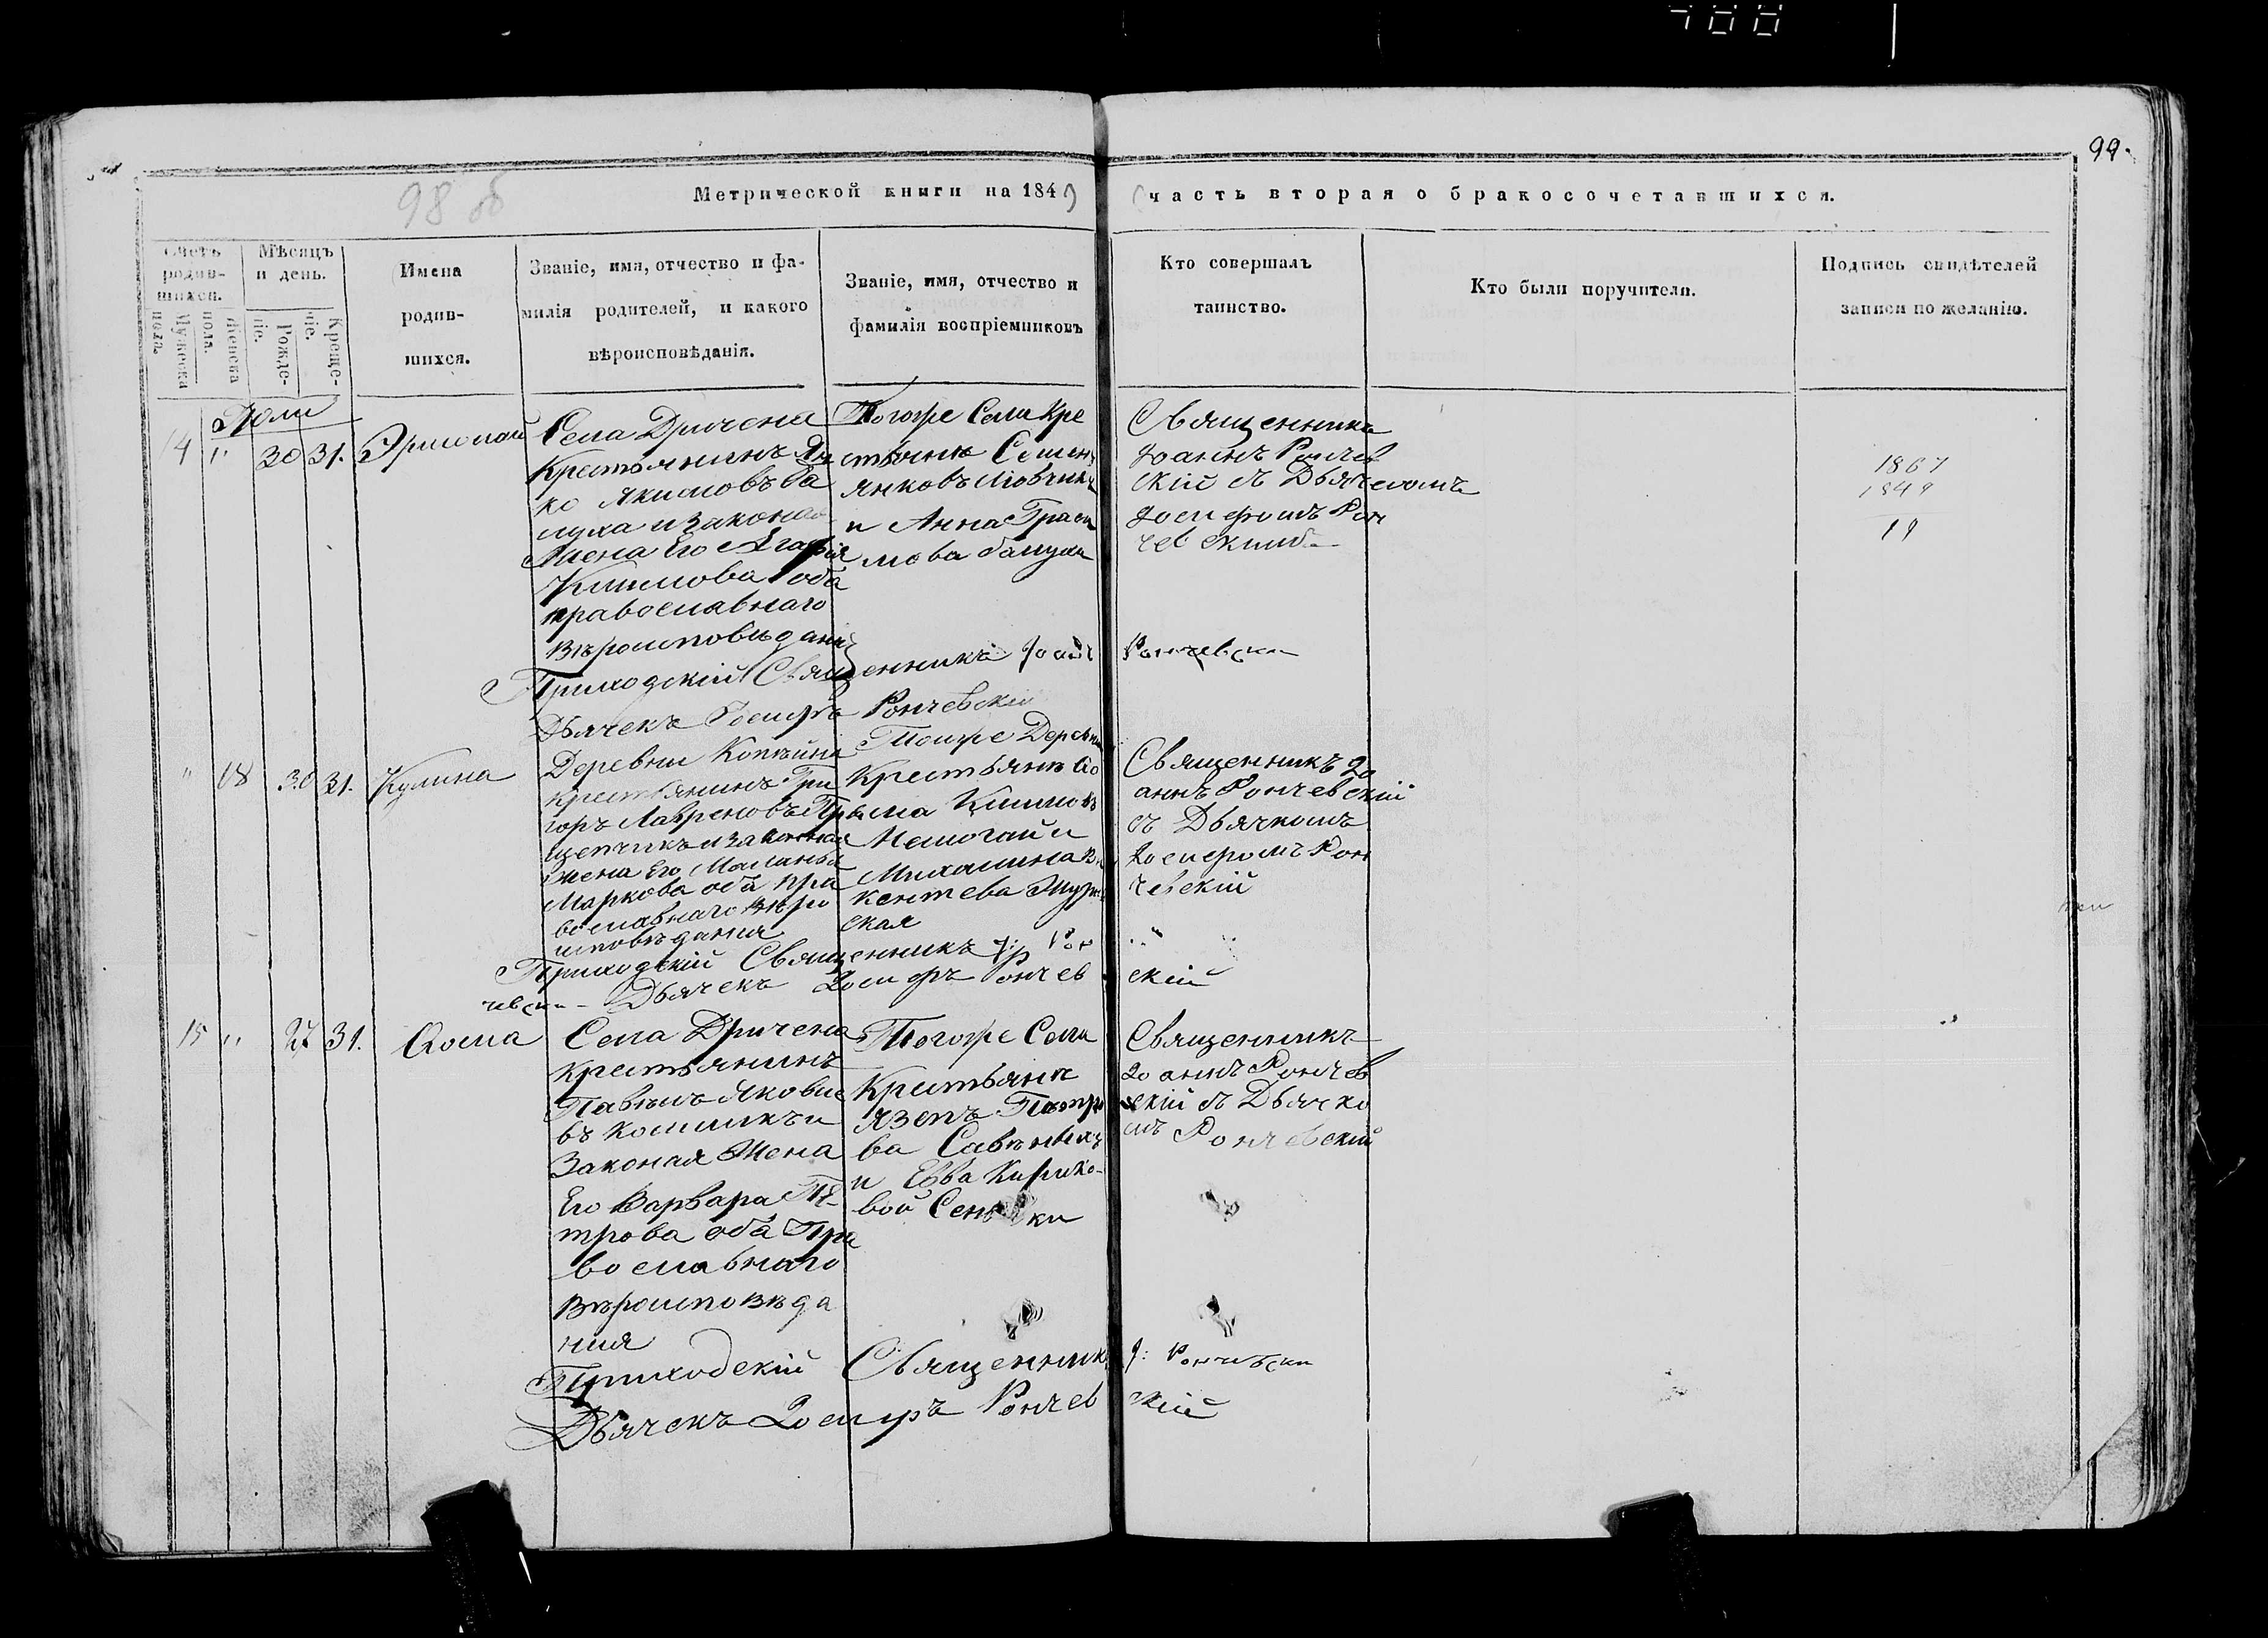 99.
98 об
Метрической книги на 1849 часть вторая о бракосочетавшихся.
Счетъ родив-шихся.
Мужеска пола.
Женска пола.
Мѣсяцъ и день.
Рожде-ніе.
Креще-ніе.
Имена
родив-
шихся.
Званіе, имя, отчество и фа-
милія родителей, и какого
вѣроисповѣданія.
Званіе, имя, отчество и
фамилія воспріемниковъ
Кто совершалъ
таинство.
Кто были поручители.
Подпись свидѣтелей
записи по желанію.
Юли
14 " 30 31.
Села Дричена
Крестьянинъ Ян
ко Якимовъ Ба
луха и законая
Жена Его Агафія
Климова оба
православнаго
Вѣроисповѣдания
Тогоже Села Кре
стьяне Семенъ
Янковъ
и Анна Гра
мова балухи
Священникъ
Іоаннъ Рончев
скій съ Дьячкомъ
Іосифомъ Рон
чевскимъ
1867
1849
19
Приходскій Священникъ Іоаннъ Рончевски
Дьячекъ Іосифъ Рончевскій
" 18 30 31. Кулина
Деревни
крестьянинъ Гри
горъ Лавреновъ При
щепчикъ и законная
жена Его Маланья
Маркова оба пра
вославнаго Вѣро
исповѣдания
Тоиже Деревни
Крестьяне
Климовъ
и
Михалина Ви
кентева
ская
Священникъ Іо
аннъ Рончевскій
съ Дьячкомъ
Іосифомъ Рон
чевскій
Приходскій Священникъ І: Рон
чевски - Дьячекъ Іосифъ Рончев скій
15 " 27 31.
Села Дричена
Крестьянинъ
Павелъ Якovле
въ и
Законая Жена
Его Варвара Пе-
трова оба Пра
вославнаго
Вѣроисповѣда
ния
Тогоже Села
Крестьяне
Язепъ
ва
и Евва Кирико-
вой
Священникъ
Іоаннъ Рончев
скій съ Дьячко
мъ Рончевскій
Приходскій Священникъ І: Рончевски
Дьячекъ Іосифъ Рончев скій